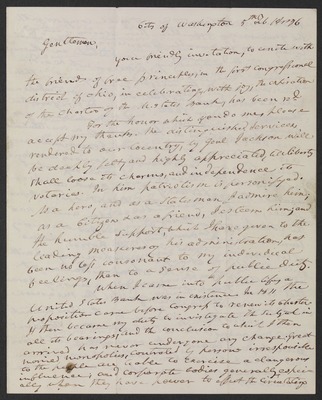 City of Washington 5th Feb. 1836
Gentlemen,
Your friendly invitation, to unite with
the friends of free principles, in the first congressional
district of Ohio, in celebrating with joy, the expiration
of the Charter of the U States Bank, has been recd.
For the honor which you do me, please
accept my thanks. The distinguished services,
rendered to our country, by Genl Jackson, will
be deeply felt, and highly appreciated, till liberty
shall loose its charms, and independence its
votaries. In him patriotism is personified.
As a hero, and as a statesman, I admire him;
as a citizen and as a friend, I esteem him; and
the humble support, which I have given to the
leading measures of his administration, has
been no less consonant to my individual
feelings, than to a sense of public duty.
When I came into public life, a
United States Bank was in existence. In 1811 the
proposition came before Congress to renew its charter.
It then became my duty to investigate the subject in
all its bearings; and the conclusion to which I then
arrived has never undergone any change. Great
monied monopolies, controled by persons irresponsible
to the people, are liable to exercise a dangerous
influence; and corporate bodies generally, especi-
ally when they have power to effect the circulating